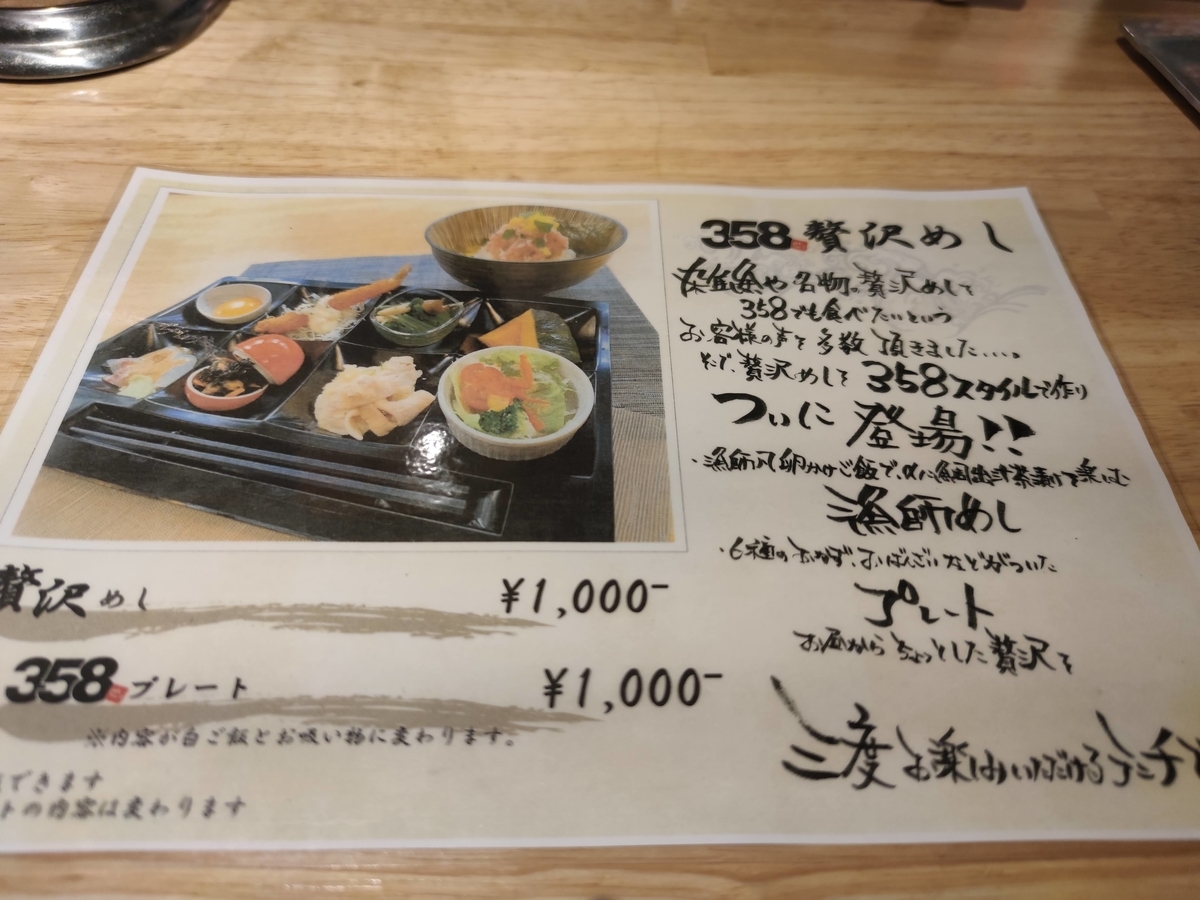 358 贅沢めし
雑魚や名物の贅沢めしを
358でも食べたいという
お客様の声を多数頂きました....。
そこで、贅沢めしを358スタイルで作り
ついに登場!!
・漁師風卵かけご飯で、〆に鯛出汁茶漬けで楽しむ
漁師めし
・6種のおかず、おばんざいなどがついた
プレート
お昼からちょっとした贅沢を
三度お楽しみいただけるランチ
贅沢めし ¥1,000-
358 プレート ¥1,000-
※内容が白ご飯とお吸い物に変わります。
できます
トの内容は変わります